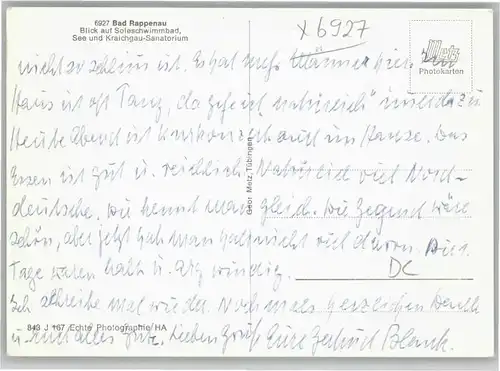 6927 Bad Rappenau
Blick auf Soleschwimmbad,
See und Kraichgau-Sanatorium
X 6927
Metz
Photokarten
nicht so schlimm ist. Es hat mehr Männer hier. Im
Haus ist oft Tanz, da gehe ich natürlich
Heute Abend ist auch im Hause. Das
Essen ist gut u. reichlich. Natürlich viel Nord-
deutsche. Die kennt man gleich. Die Gegend wäre
schön, aber jetzt hat man halt nicht viel davon. Die
Tage waren kalt u. arg windig.
DC
Ich schreibe mal wieder. Nochmals herzlichen Dank
u. Euch alles Gute. Lieben Gruß Eure Gertrud Blank.
Gebr. Metz, Tübingen
843 J 167 Echte Photographie HA